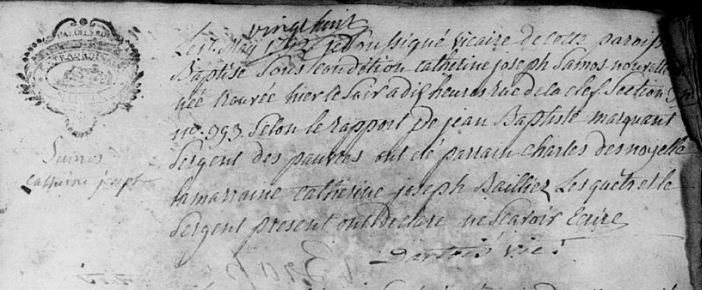 vingt huit
Le May 1792 je soussigné vicaire de cette paroisse
Baptisé sous condition catherine joseph Samos nouvelle
née trouvée hier le soir a dix heures rue de la clef Section
no. 993. Selon le rapport De jean Baptiste marquant
Sergent des pauvres ont été parrain charles desnoyelle
la marraine catherine joseph Baillier Lesquels et le
Sergent present ont declaré ne scavoir Ecrire
catherine joseph
Dartois vic.